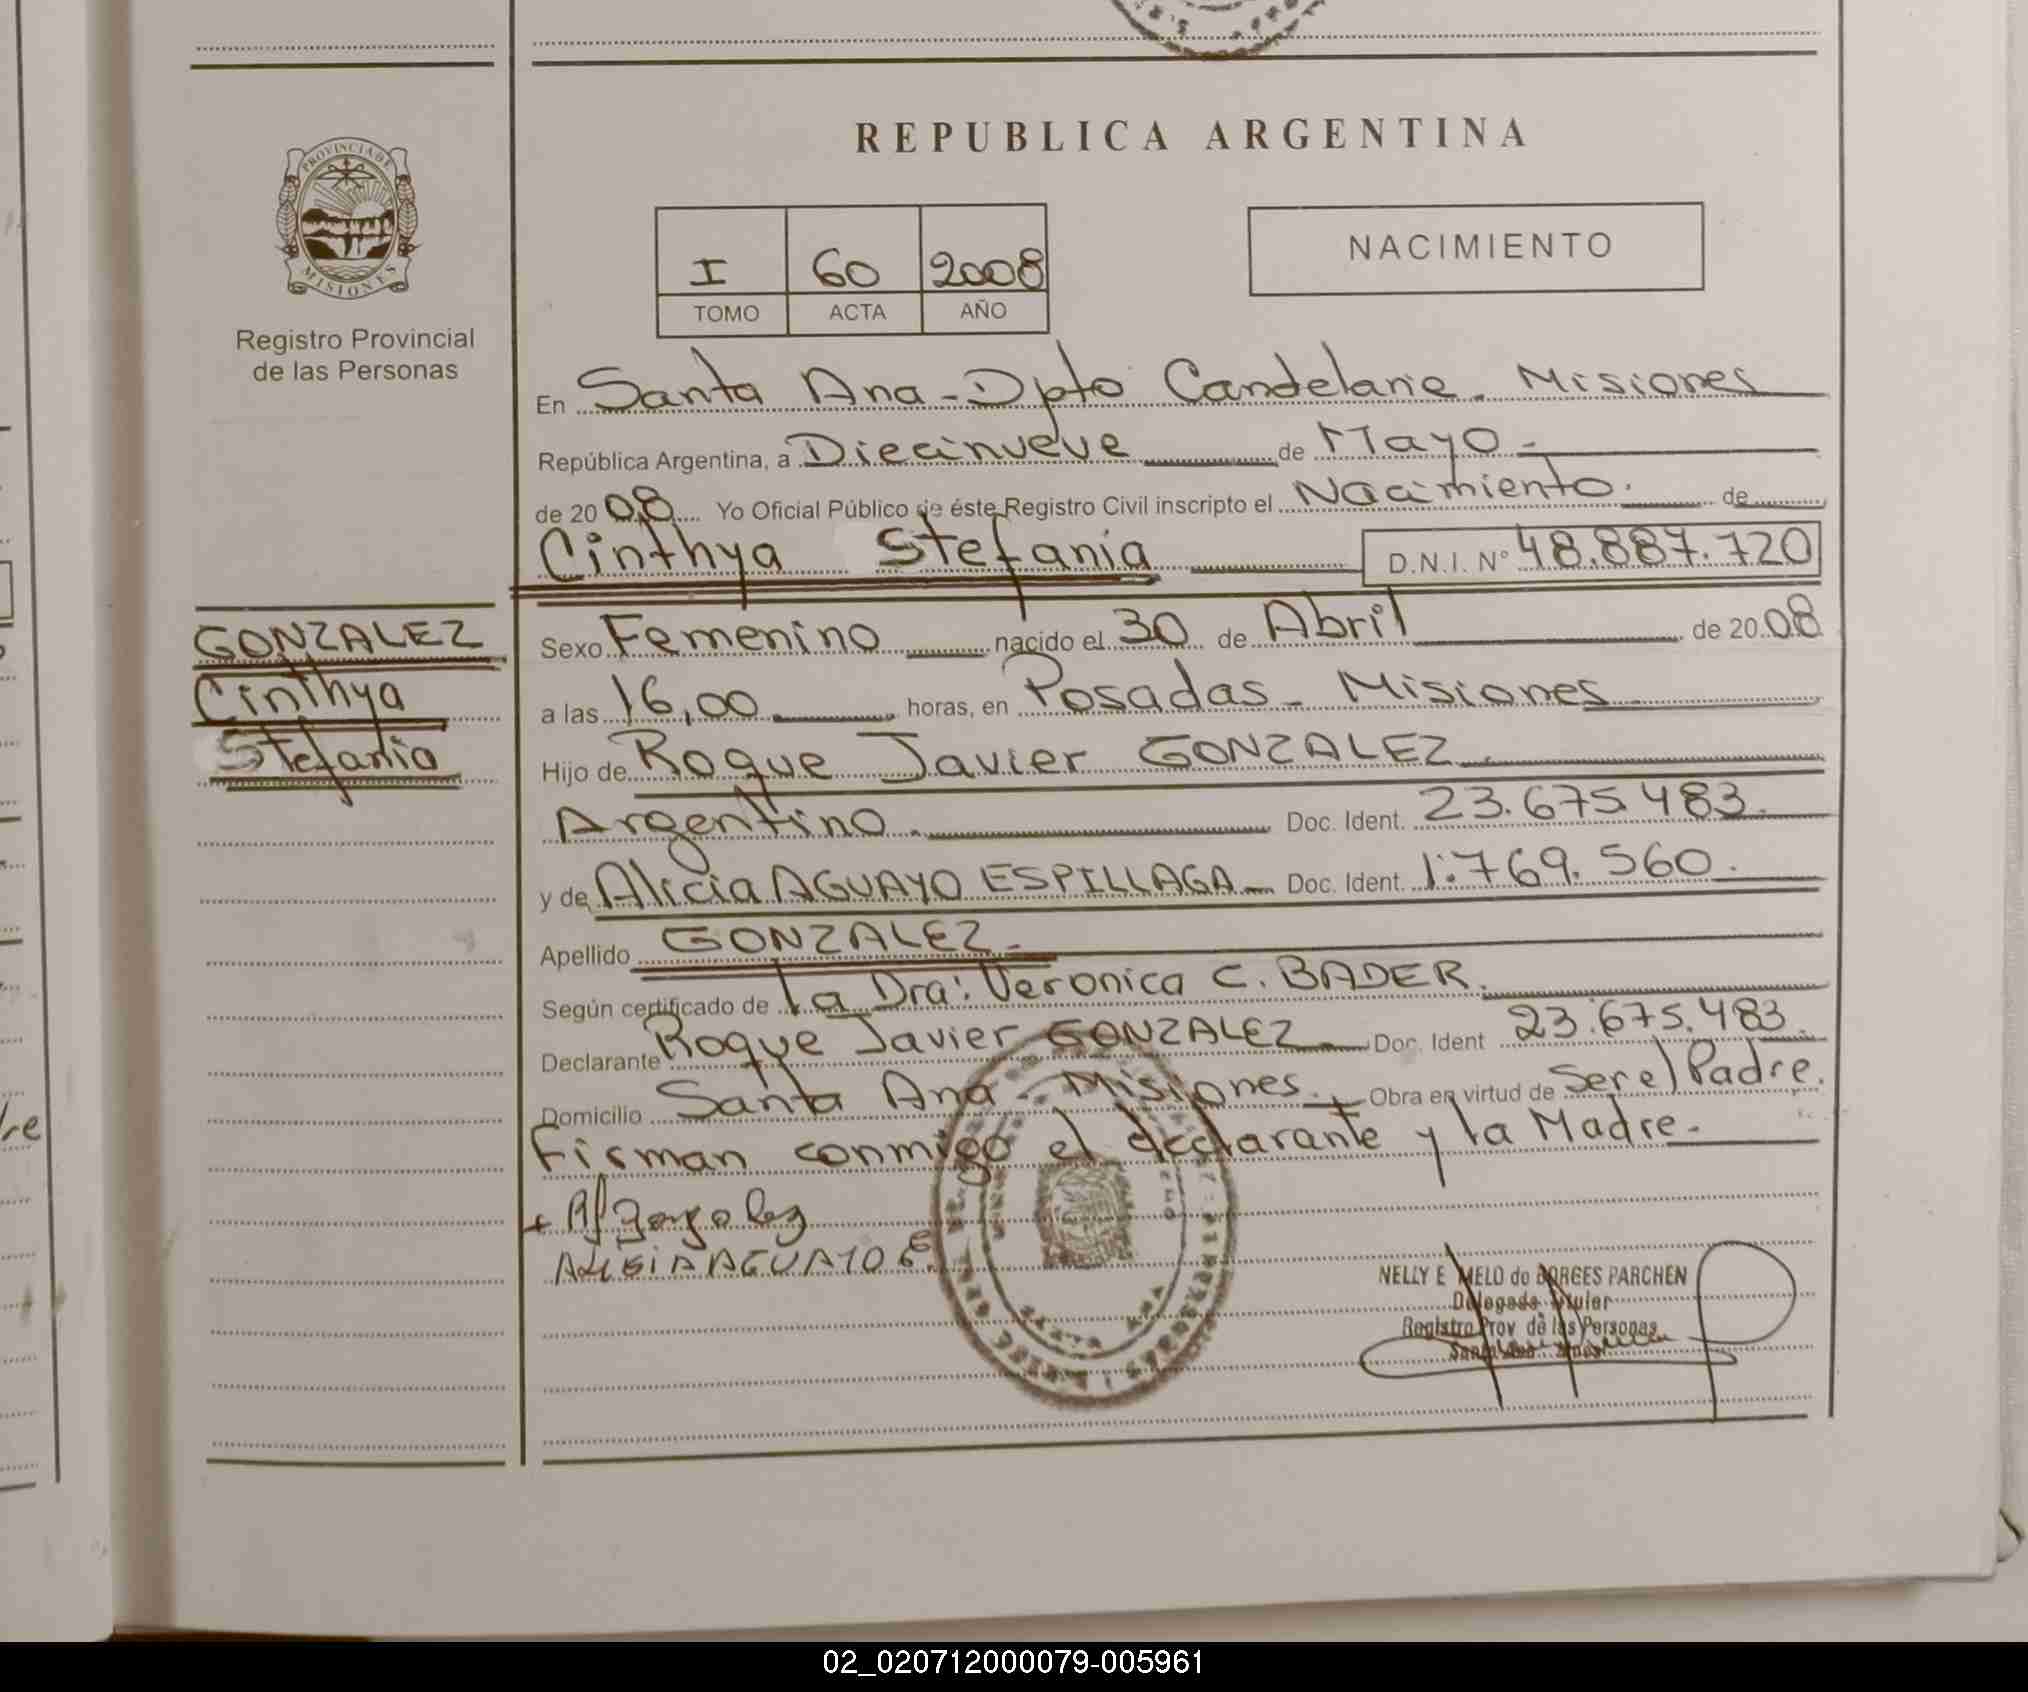 REPUBLICA ARGENTINA
PROVINCIA DE
MISIONES
Registro Provincial
de las Personas
I 60 2008
TOMO ACTA AÑO
NACIMIENTO
En Santa Ana - Dpto Candelaria. Misiones
República Argentina, a Diecinueve de Mayo -
de 2008 Yo Oficial Público de éste Registro Civil inscripto el Nacimiento. de
Cinthya Stefania D.N.I. Nº 48.887.720
GONZALEZ
Cinthya
Stefania
Sexo Femenino nacido el 30 de Abril de 2008
a las 16,00 horas, en Posadas - Misiones
Hijo de Roque Javier GONZALEZ
Argentino. Doc. Ident. 23.675.483.
y de Alicia AGUAYO ESPILLAGA - Doc. Ident. 1.769.560.
Apellido GONZALEZ -
Según certificado de la Dra: Veronica C. BADER.
Declarante Roque Javier GONZALEZ - Doc. Ident 23.675.483.
Domicilio Santa Ana - Misiones. Obra en virtud de Ser el Padre.
Firman conmigo el declarante y la Madre.
ALICIA AGUAYO E.
NELLY E MELO de BORGES PARCHEN
Delegada Titular
Registro Prov de las Personas
Santa Ana
re
02_020712000079-005961